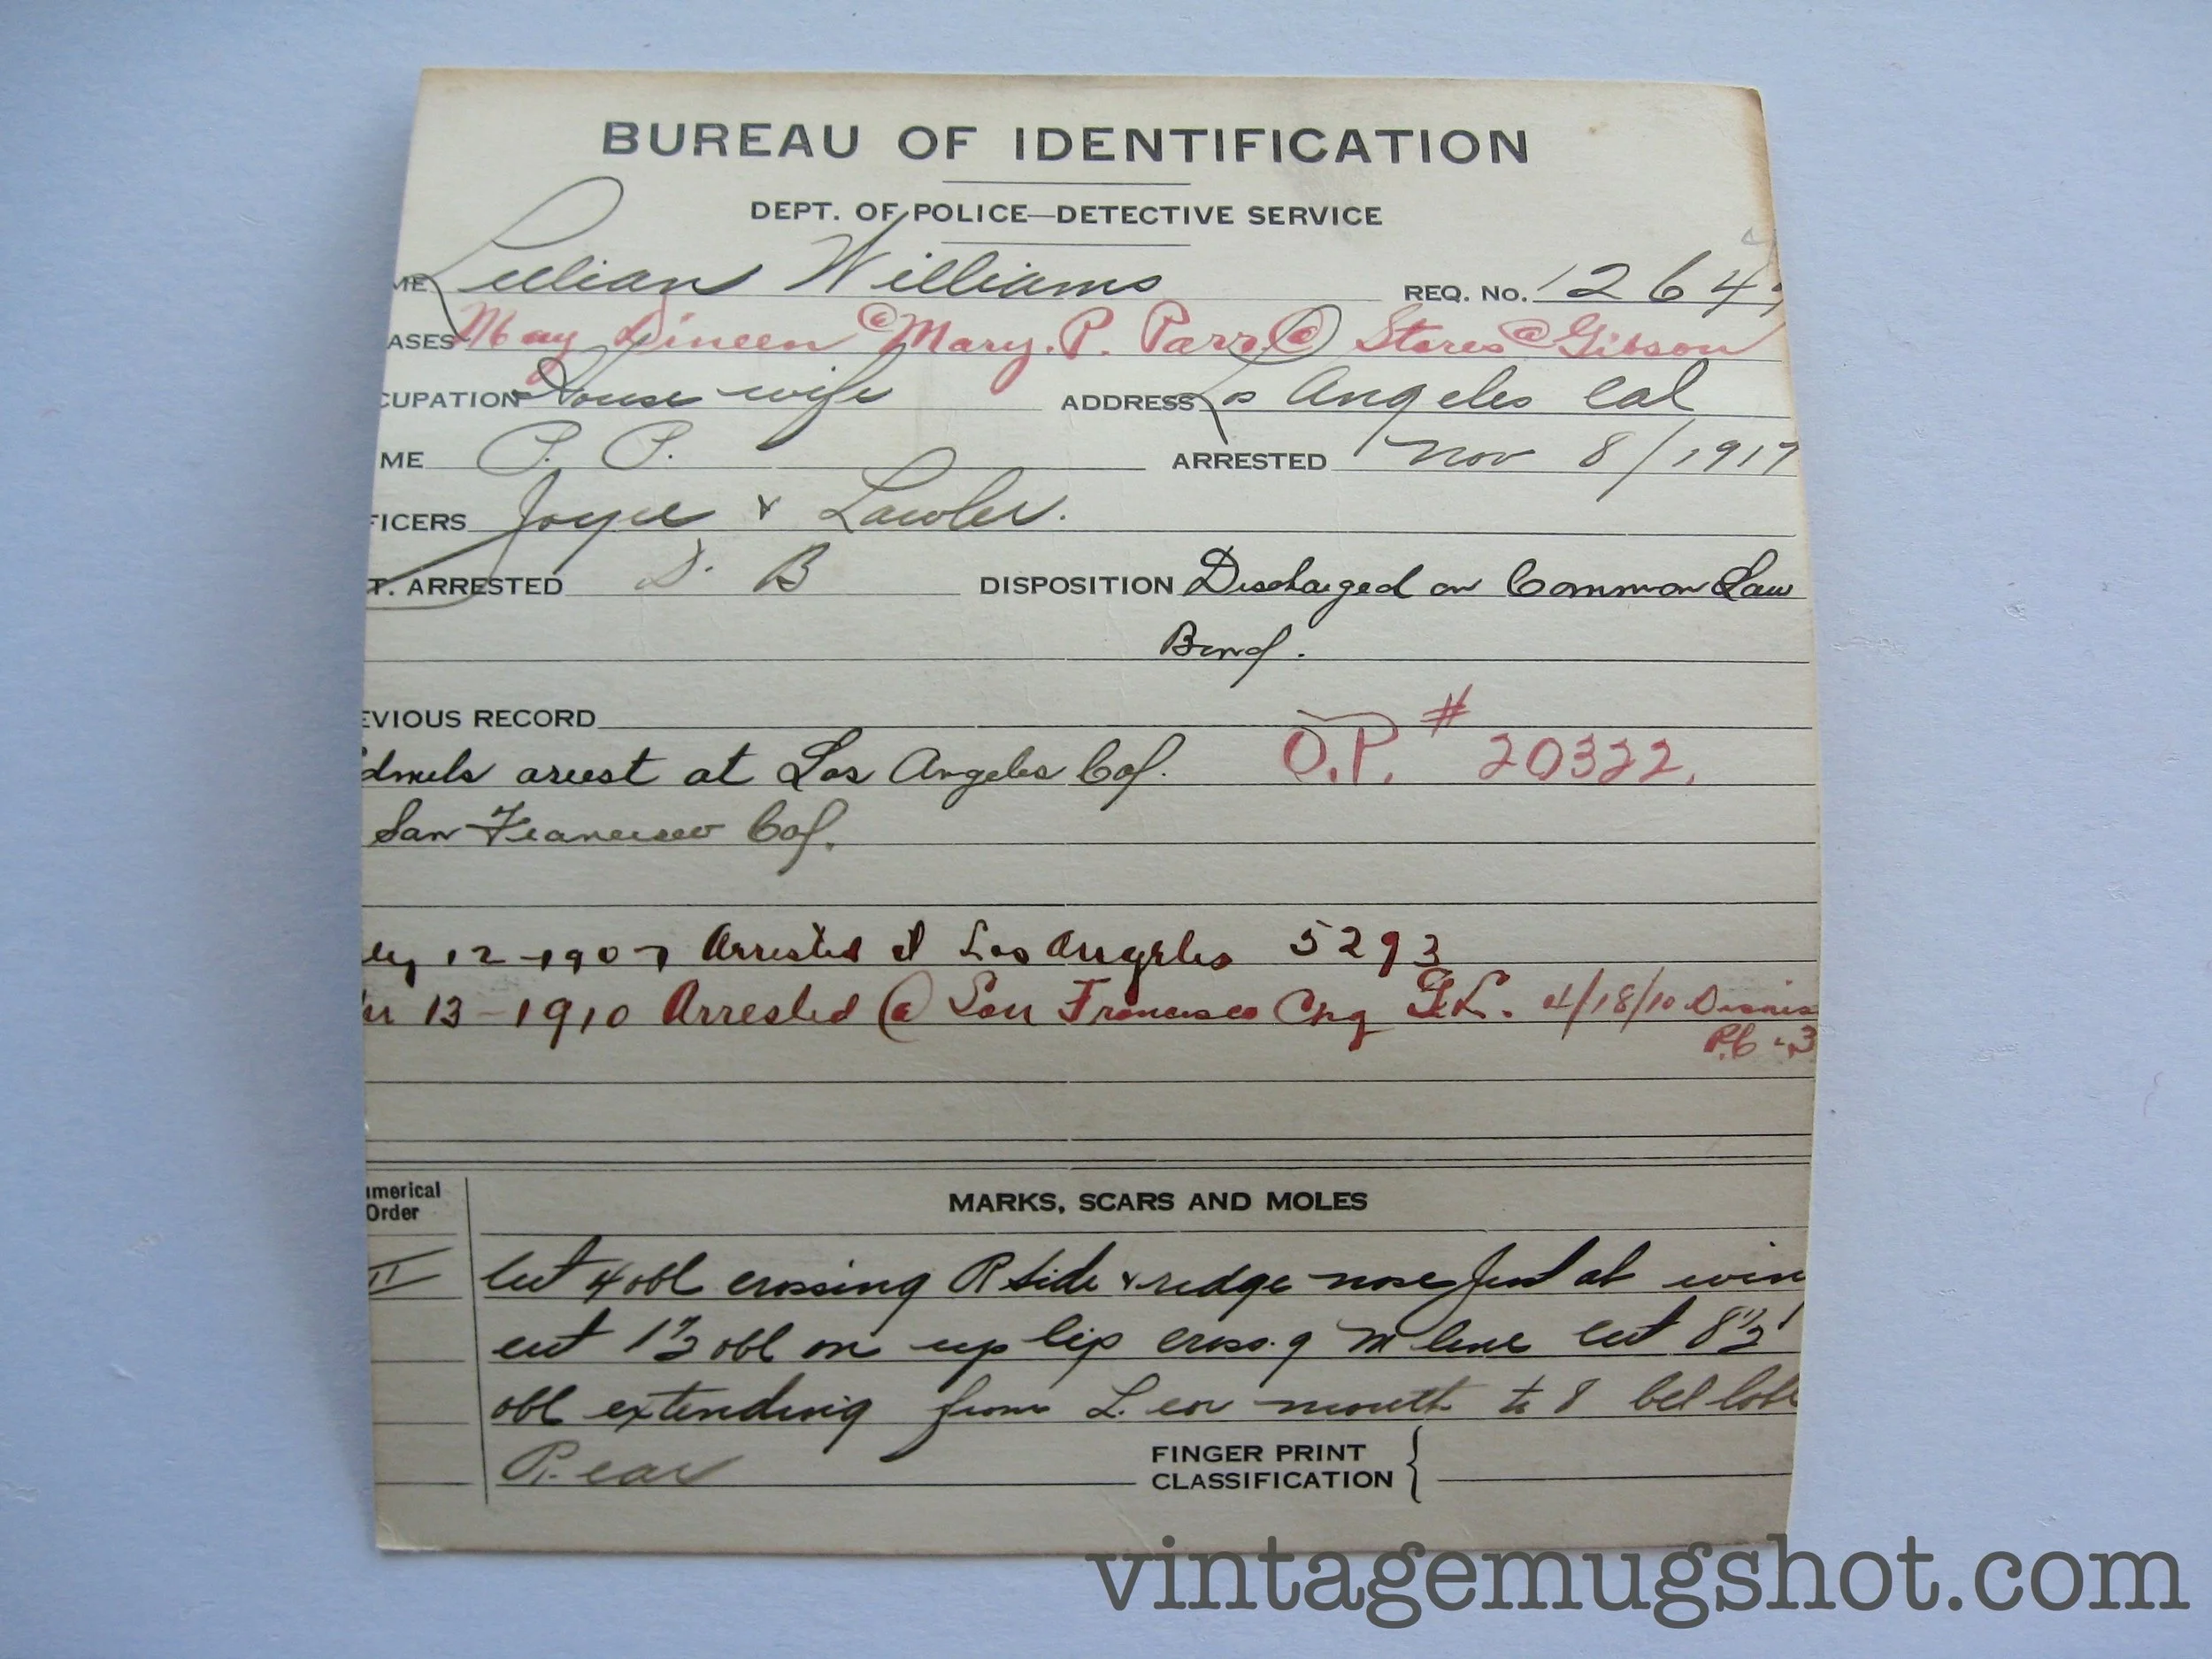 BUREAU OF IDENTIFICATION
DEPT. OF POLICE—DETECTIVE SERVICE
ME Lillian Williams REQ. No. 1264
ASES May Dineen @ Mary. P. Parr @ Stares @ Gibson
CUPATION House wife ADDRESS Los Angeles Cal
ME P. P. ARRESTED Nov 8/1917
FICERS Joyce & Lawler.
T. ARRESTED D. B DISPOSITION Discharged on Common Law
Bond.
EVIOUS RECORD
arrest at Los Angeles Cal. O.P. # 20322.
San Francisco Cal.
12-1907 Arrested at Los Angeles 5293
13-1910 Arrested @ San Francisco Chg G.L. 4/18/10 Dismis
P.C.
umerical Order
MARKS, SCARS AND MOLES
II cut 4 obl crossing R side & ridge nose just at
cut 1 1/2 obl on up lip cross.g M line cut 8 1/2
obl extending from L. cor mouth to 8 bel lobe
R. ear FINGER PRINT CLASSIFICATION {
vintagemugshot.com